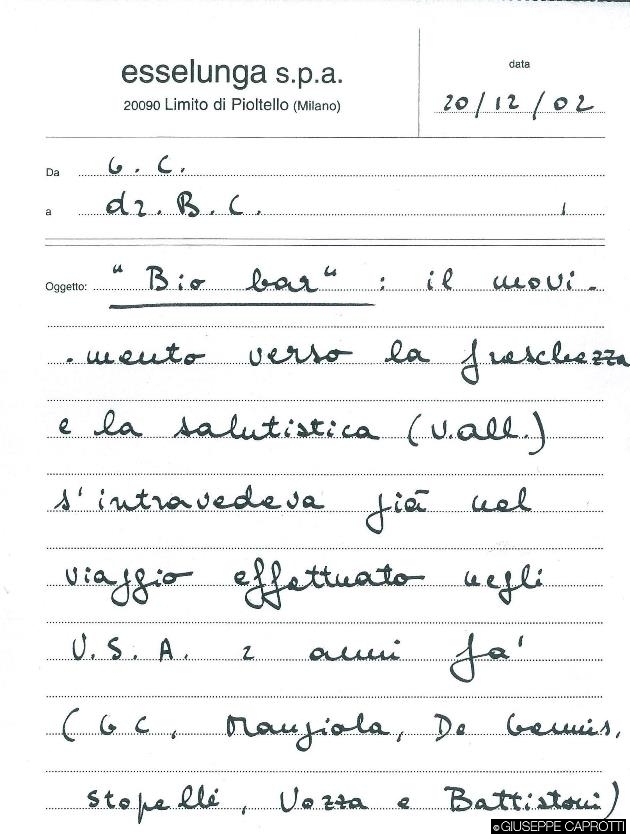 esselunga s.p.a.
20090 Limito di Pioltello (Milano)
data
20/12/02
Da G. C.
a dr. B. C.
Oggetto: "Bio bar" : il movi-
-mento verso la freschezza
e la salutistica (v. all.)
s'intravedeva già nel
viaggio effettuato negli
U.S.A. 2 anni fà'
(GC, Mangiola, De Gennis,
Stopelli, Vozza e Battistoni)
©GIUSEPPE CAPROTTI